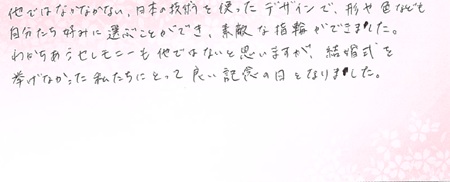 他ではなかなかない、日本の技術を使ったデザインで、形や色なども
自分たち好みに選ぶことができ、素敵な指輪ができました。
わかちあうセレモニーも他ではないと思いますが、結婚式を
挙げなかった私たちにとって良い記念の日となりました。